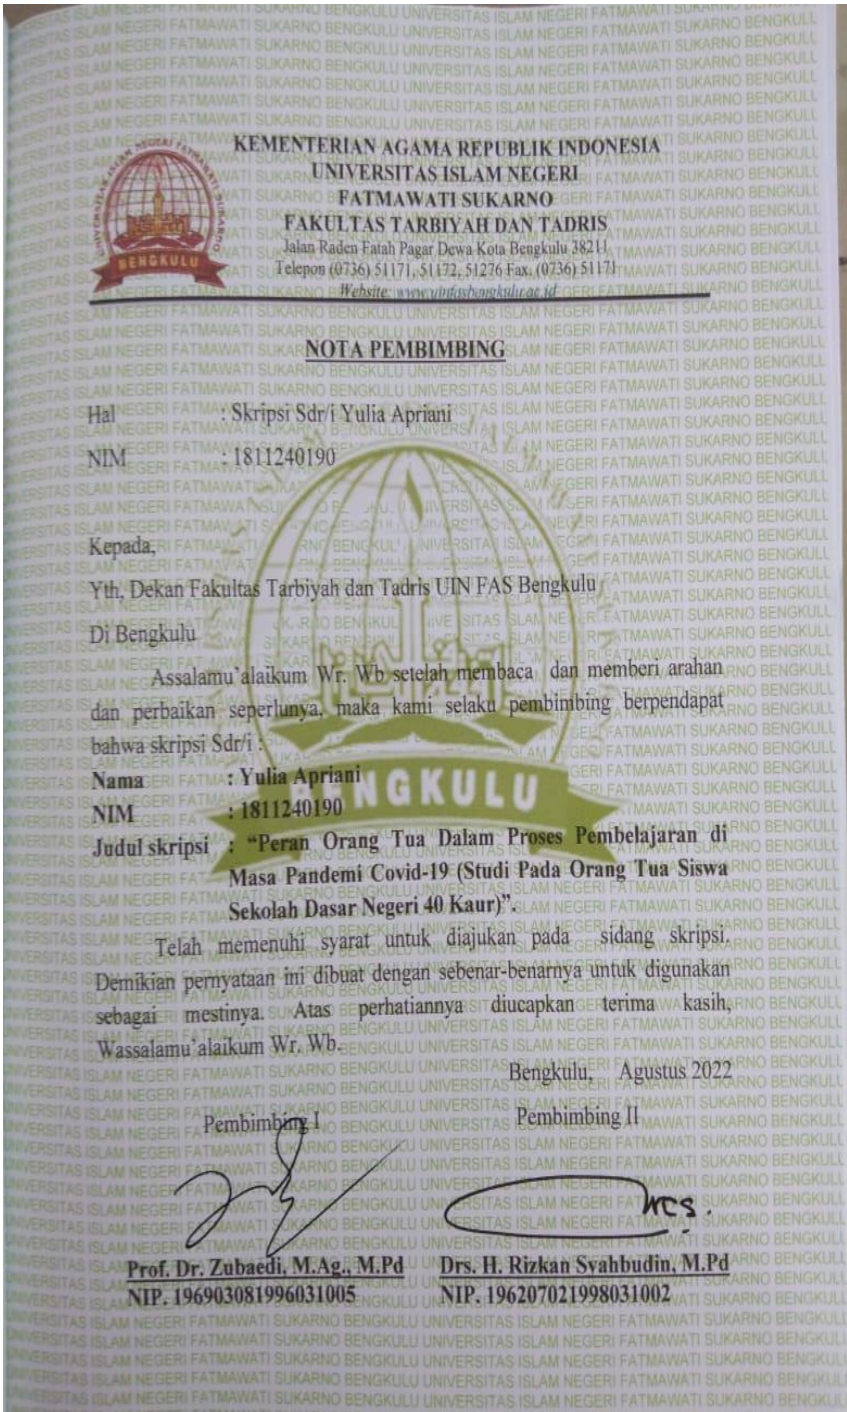 KEMENTERIAN AGAMA REPUBLIK INDONESIA
UNIVERSITAS ISLAM NEGERI
FATMAWATI SUKARNO
FAKULTAS TARBIYAH DAN TADRIS
Jalan Raden Fatah Pagar Dewa Kota Bengkulu 38211
Telepon (0736) 51171, 51172, 51276 Fax. (0736) 51171
Website: www.uinfasbengkulu.ac.id
BENGKULU
NOTA PEMBIMBING
Hal : Skripsi Sdr/i Yulia Apriani
NIM : 1811240190
Kepada,
Yth, Dekan Fakultas Tarbiyah dan Tadris UIN FAS Bengkulu
Di Bengkulu
Assalamu'alaikum Wr. Wb setelah membaca dan memberi arahan
dan perbaikan seperlunya, maka kami selaku pembimbing berpendapat
bahwa skripsi Sdr/i :
Nama : Yulia Apriani
NIM : 1811240190
Judul skripsi : "Peran Orang Tua Dalam Proses Pembelajaran di
Masa Pandemi Covid-19 (Studi Pada Orang Tua Siswa
Sekolah Dasar Negeri 40 Kaur)".
Telah memenuhi syarat untuk diajukan pada sidang skripsi.
Demikian pernyataan ini dibuat dengan sebenar-benarnya untuk digunakan
sebagai mestinya. Atas perhatiannya diucapkan terima kasih,
Wassalamu'alaikum Wr. Wb.
BENGKULU
Bengkulu, Agustus 2022
Pembimbing I Pembimbing II
Prof. Dr. Zubaedi, M.Ag., M.Pd Drs. H. Rizkan Syahbudin, M.Pd
NIP. 196903081996031005 NIP. 196207021998031002